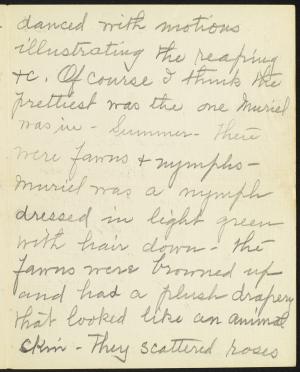 danced with motions
illustrating the reaping
&c. Of course I think the
prettiest was the one Muriel
was in - Summer - there
were fawns & nymphs -
Muriel was a nymph
dressed in light green
with hair down - the
fawns were browned up
and had a plush drapery
that looked like an animal
skin - They scattered roses